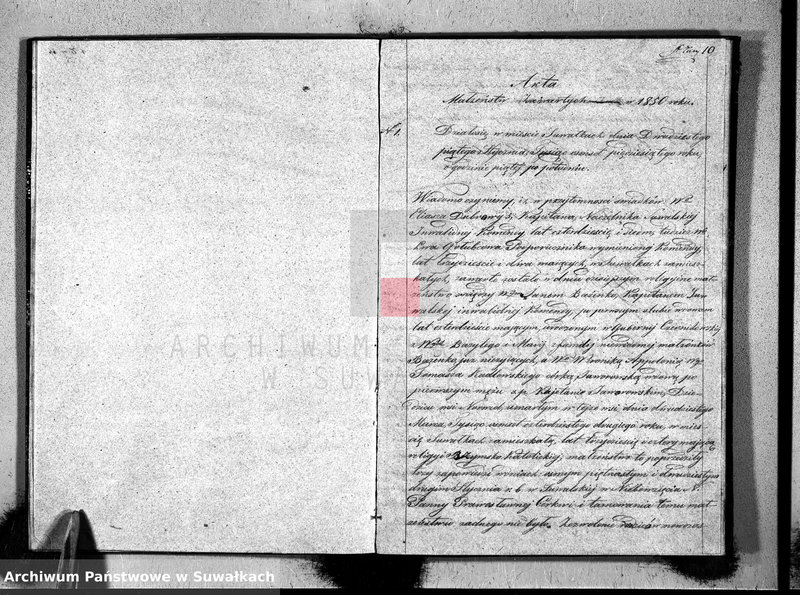 10
Akta
Małżeństw zawartych w 1850 roku.
N 1.
Działo się w mieście Suwałkach dnia Dwudziestego
piątego Stycznia Tysiąc osmset pięćdziesiątego roku,
o godzinie piątej po południu.
Wiadomo czynimy, iż w przytomności świadków
Eliasza Kapitana, Naczelnika Suwalskiej
Inwalidnej Komendy, lat czterdzieści i siedm, tudzież
Podporucznika wymienionej Komendy,
lat trzydzieści i dwa mających, w Suwałkach zamiesz-
kałych, zawarte zostało w dniu dzisiejszym religijne mał-
żeństwo między Janem Bażenko, Kapitanem Su-
walskiej inwalidnej Komendy, po pierwszym ślubie wdowcem
lat czterdzieści mającym, urodzonym w Gubernji Czernihowskiej
z Bazylego i Marij niegdy małżonków
Bażenko już nieżyjących, a Weroniką Apolonią
Tomasza córką, Jaworowską wdową, po
pierwszym mężu Kajetanie Jaworowskim, Dzie-
dzicu wsi zmarłym w tejże wsi dnia dwudziestego
Marca Tysiąc osmset czterdziestego drugiego roku, w mieś-
cie Suwałkach zamieszkałą, lat trzydzieści i cztery mającą
religji Rzymsko Katolickiej; małżeństwo to poprzedziły
trzy zapowiedzi w dniach: osmym piętnastym i dwudziestym
drugim Stycznia r. b. w Suwalskiej
Panny Prawosławnej Cerkwi i tamowania temu mał-
żeństwu żadnego nie było. Zezwolenie
ARCHIWUM
W SUWA
Archiwum Państwowe w Suwałkach